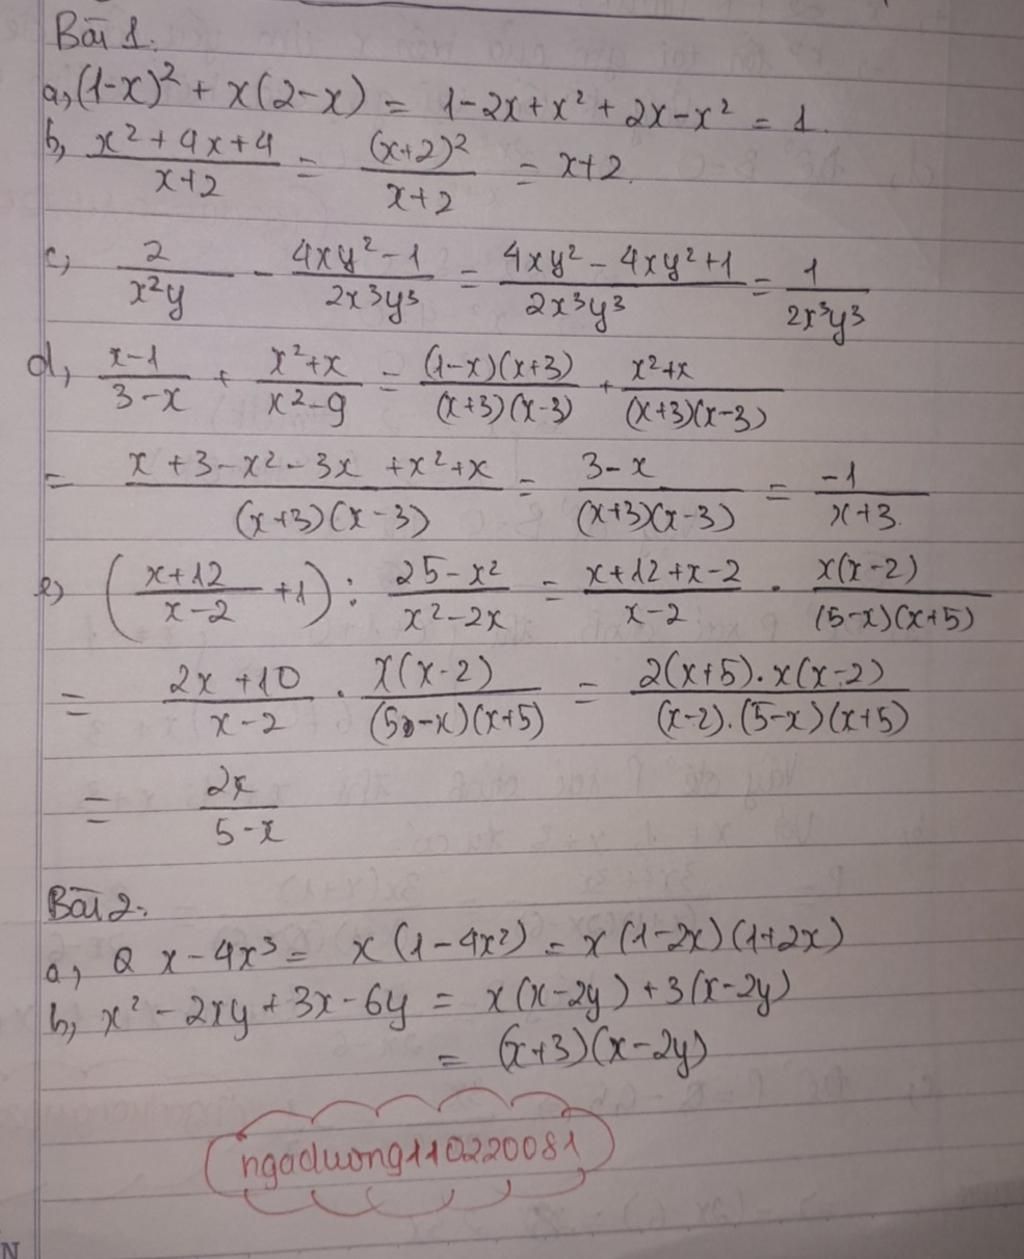 Bài 1:
a, (1-x)² + x(2-x) = 1-2x+x² + 2x-x² = 1.
b, (x²+4x+4)/(x+2) = (x+2)²/(x+2) = x+2.
c, 2/(x²y) - (4xy²-1)/(2x³y³) = (4xy² - 4xy²+1)/(2x³y³) = 1/(2x³y³)
d, (x-1)/(3-x) + (x²+x)/(x²-9) = (1-x)(x+3)/((x+3)(x-3)) + (x²+x)/((x+3)(x-3))
= (x+3-x²-3x+x²+x)/((x+3)(x-3)) = (3-x)/((x+3)(x-3)) = -1/(x+3).
e, ((x+12)/(x-2) + 1) : (25-x²)/(x²-2x) = (x+12+x-2)/(x-2) . x(x-2)/((5-x)(x+5))
= (2x+10)/(x-2) . x(x-2)/((5-x)(x+5)) = 2(x+5).x(x-2)/((x-2).(5-x)(x+5))
= 2x/(5-x)
Bài 2:
a, x-4x³ = x(1-4x²) = x(1-2x)(1+2x)
b, x²-2xy+3x-6y = x(x-2y)+3(x-2y)
= (x+3)(x-2y)
ngaduong110220081